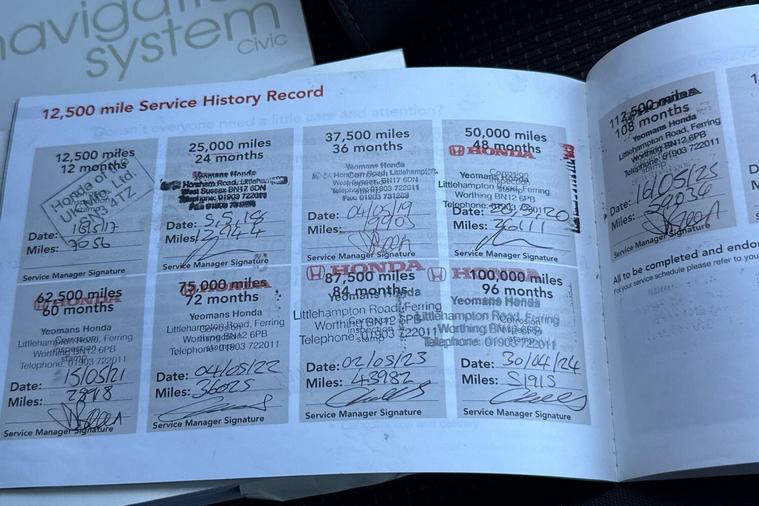 navigation
system
Civic
12,500 mile Service History Record
12,500 miles
12 months
Honda of
Date: 18/5/17
Miles: 7056
Service Manager Signature
25,000 miles
24 months
Yeomans Honda
Horsham Road, Littlehampton
West Sussex BN17 6DN
Telephone: 01903 722011
Date: 5.5.18
Miles:
Service Manager Signature
37,500 miles
36 months
Yeomans Honda
Horsham Road, Littlehampton
West Sussex BN17 6DN
Telephone: 01903 722011
Fax: 01903 751203
Date: 04/05/19
Miles:
Service Manager Signature
50,000 miles
48 months
HONDA
Yeomans Honda
Littlehampton Road, Ferring
Worthing BN12 6PB
Telephone:
Date:
Miles: 26111
Service Manager Signature
62,500 miles
60 months
HONDA
Yeomans Honda
Littlehampton Road, Ferring
Worthing BN12 6PB
Telephone: 01903 722011
Date: 15/05/21
Miles:
Service Manager Signature
75,000 miles
72 months
HONDA
Yeomans Honda
Littlehampton Road, Ferring
Worthing BN12 6PB
Telephone: 01903 722011
Date: 04/05/22
Miles: 36025
Service Manager Signature
87,500 miles
84 months
HONDA
Yeomans Honda
Littlehampton Road, Ferring
Worthing BN12 6PB
Telephone: 01903 722011
Date: 02/05/23
Miles: 43982
Service Manager Signature
100,000 miles
96 months
HONDA
Yeomans Honda
Littlehampton Road, Ferring
Worthing BN12 6PB
Telephone: 01903 722011
Date: 30/04/24
Miles: 51915
Service Manager Signature
112,500 miles
108 months
Yeomans Honda
Littlehampton Road, Ferring
Worthing BN12 6PB
Telephone: 01903 722011
Date: 16/05/25
Miles: 59036
Service Manager Signature
All to be completed and endor
For your service schedule please refer to your